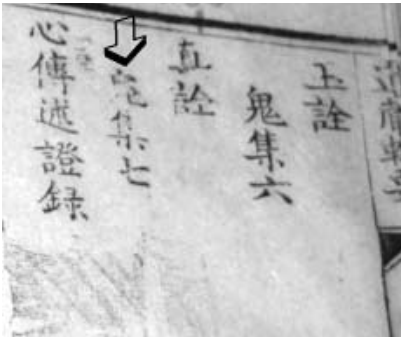 玉詮
鬼集六
真詮
鬼集七
心傳述證錄